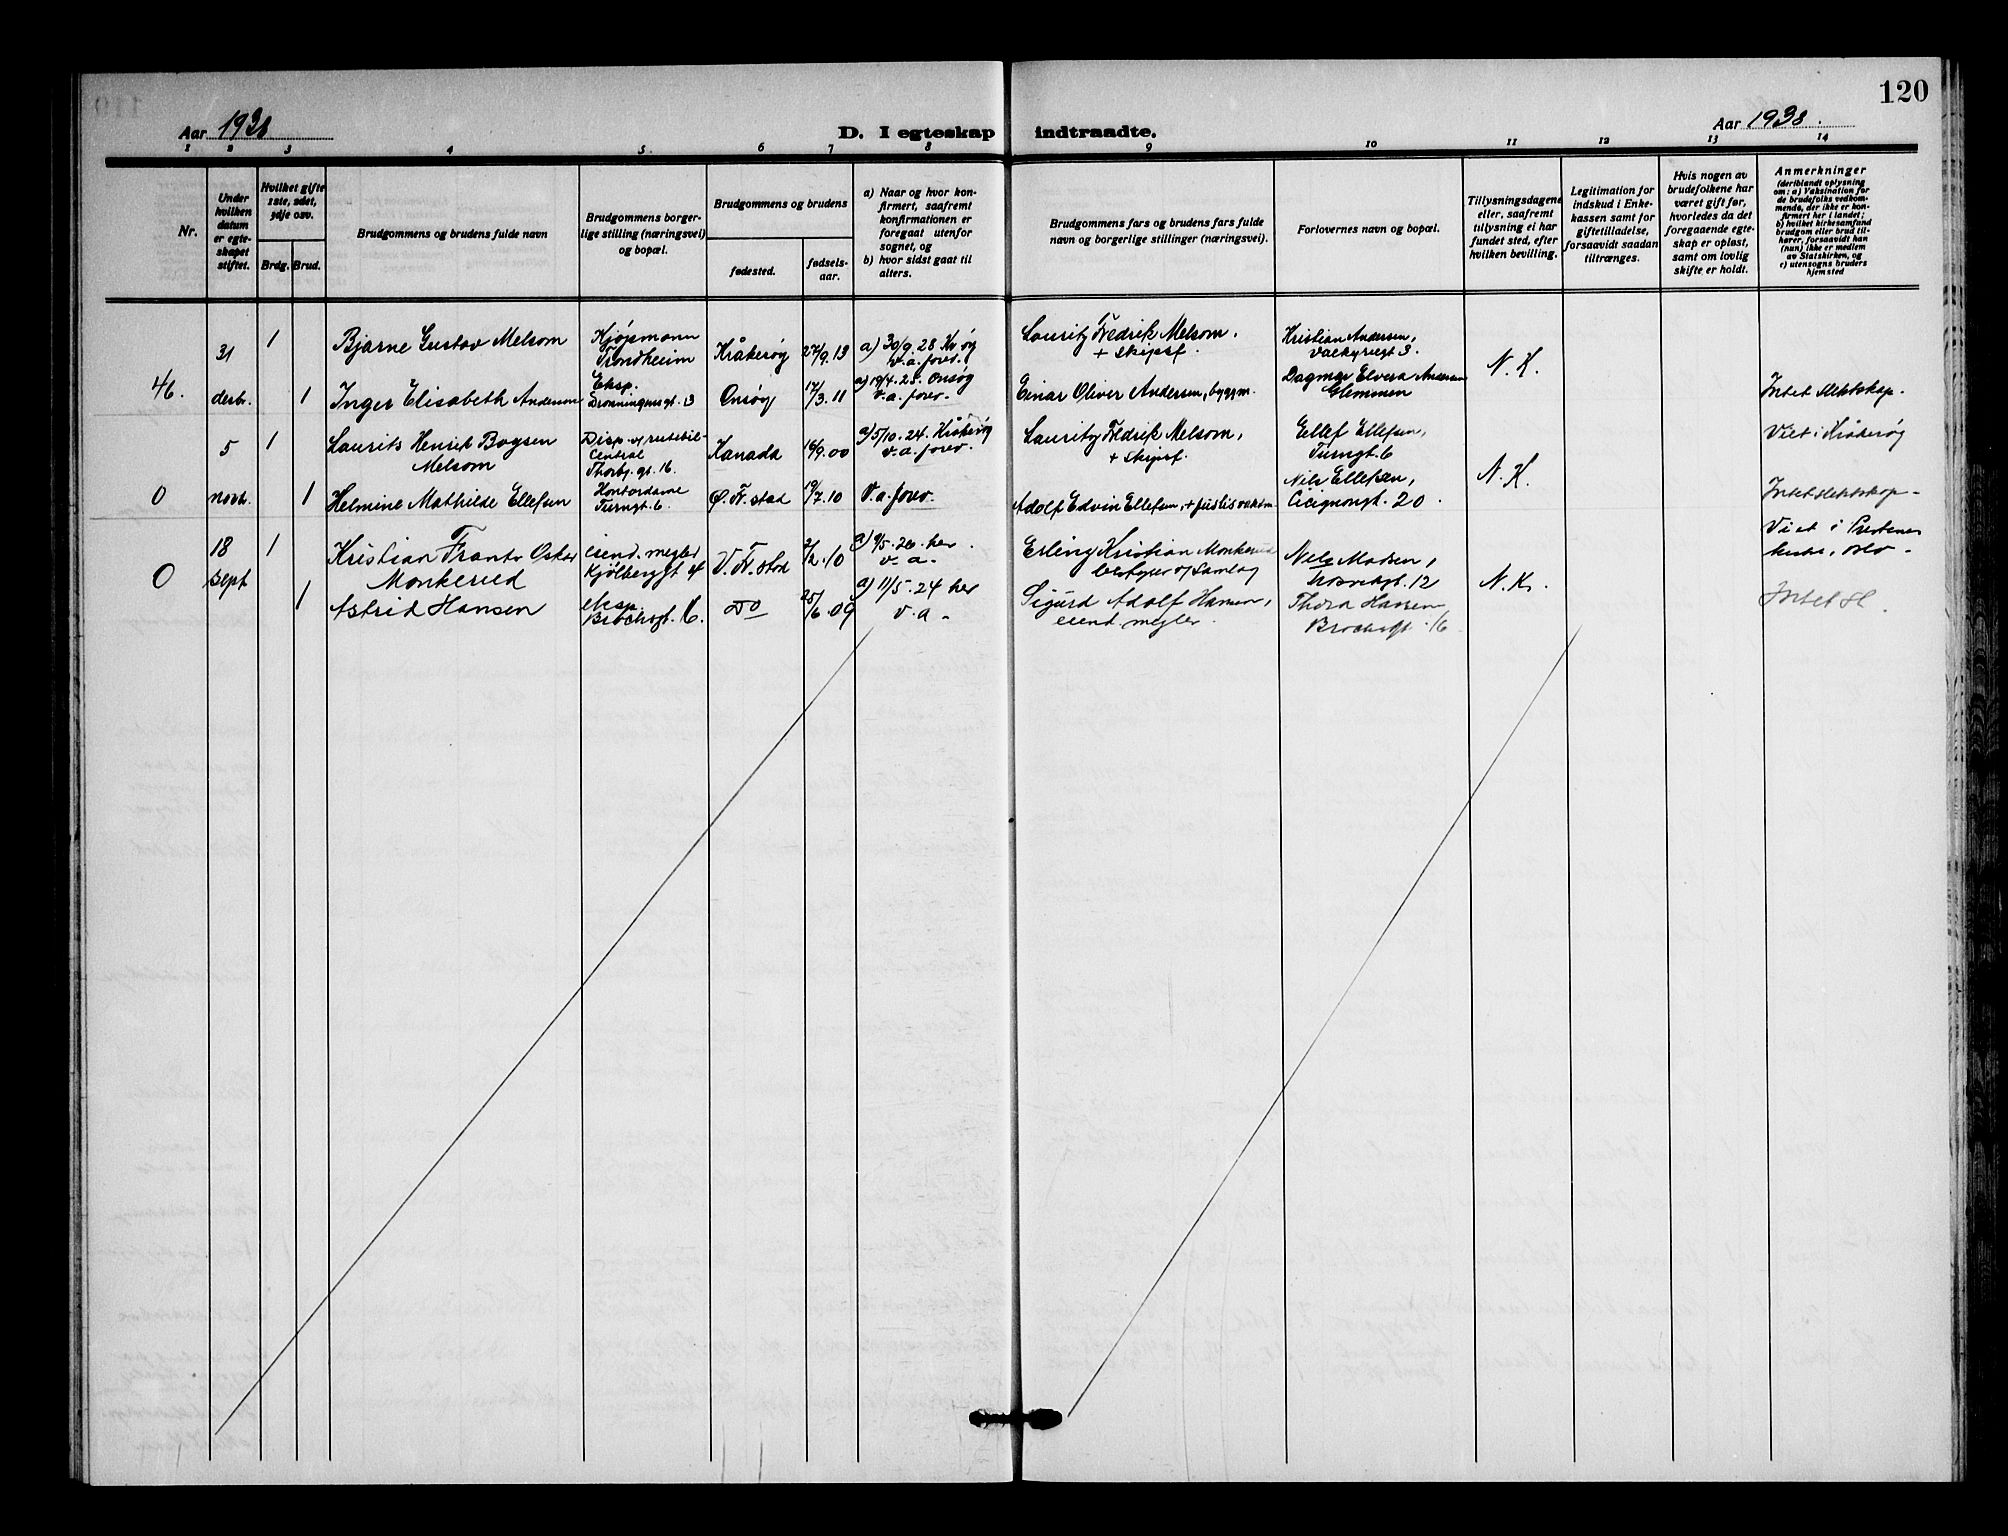 120
Aar 1938
D. I egteskap indtraadte.
Aar 1938.
1 2 3 4 5 6 7 8 9 10 11 12 13 14
Nr.
Under
hvilken
datum
er egte-
skapet
stiftet.
Hvilket gifte
1ste, 2det,
3dje osv.
Brdg. Brud.
Brudgommens og brudens fulde navn
Brudgommens borger-
lige stilling (næringsvei)
og bopæl.
Brudgommens og brudens
fødested.
fødsels-
aar.
a) Naar og hvor kon-
firmert, saafremt
konfirmationen er
foregaat utenfor
sognet, og
b) hvor sidst gaat til
alters.
Brudgommens fars og brudens fars fulde
navn og borgerlige stillinger (næringsvei).
Forlovernes navn og bopæl.
Tillysningsdagene
eller, saafremt
tillysning ei har
fundet sted, efter
hvilken bevilling.
Legitimation for
indskud i Enke-
kassen samt for
giftetilladelse,
forsaavidt saadan
tiltrænges.
Hvis nogen av
brudefolkene har
været gift før,
hvorledes da det
foregaaende egte-
skap er opløst,
samt om lovlig
skifte er holdt.
Anmerkninger
(deriblandt oplysning
om: a) Vaksination for
de brudefolks vedkom-
mende, der ikke er kon-
firmert her i landet;
b) hvilket kirkesamfund
brudgom eller brud til-
hører, forsaavidt han
(hun) ikke er medlem
av Statskirken, og
c) utensogns bruders
hjemsted
46.
31
desb.
1
Bjarne Gustav Melsom
Kjøpmann
Trondheim
Kråkerøy
27/9.13
a) 30/9.28 Kr.øy
v.a. forev.
Lauritz Fredrik Melsom.
+ skipsf.
Kristian Andersen,
Valkyriegt 3.
N.K.
1
Inger Elisabeth Andersen
Eksp.
Dronningensgt. 13
Onsøy
17/3.11
a) 19/4.25. Onsøy
v.a. forev.
Einar Oliver Andersen, byggm.
Dagmar Elvera Andersen
Glemmen
Intet slektskap.
0
5
novb.
1
Laurits Henrik Boysen
Melsom
Disp. of rutebil-
central
Thorbj. gt. 16.
Kanada
16/9.00
a) 5/10.24. Kråkerøy
v.a. forev.
Lauritz Fredrik Melsom,
+ skipsf.
Ellef Ellefsen,
Turngt. 6
N.K.
Viet i Kråkerøy
1
Helmine Mathilde Ellefsen
Kontordame
Turngt. 6.
Ø. Fr. stad
19/7.10
V.a. forev.
Adolf Edvin Ellefsen, +
Nils Ellefsen,
Cicignongt. 20.
Intet slektskap.
0
18
sept
1
Kristian Frants Oskar
Monkerud
eiend. megler
Kjølberggt 4
V. Fr. stad
2/2.10
a) 9/5.26. her
v.a.
Erling Kristian Monkerud
bestyrer of Samlag
Nils Madsen,
12
N.K.
Viet i
Oslo.
1
Astrid Hansen
eksp.
Brochsgt. 16.
Do
25/6.09
a) 11/5.24 her
v.a.
Sigurd Adolf Hansen,
eiend. megler.
Thora Hansen
Brochsgt. 16
Intet sl.